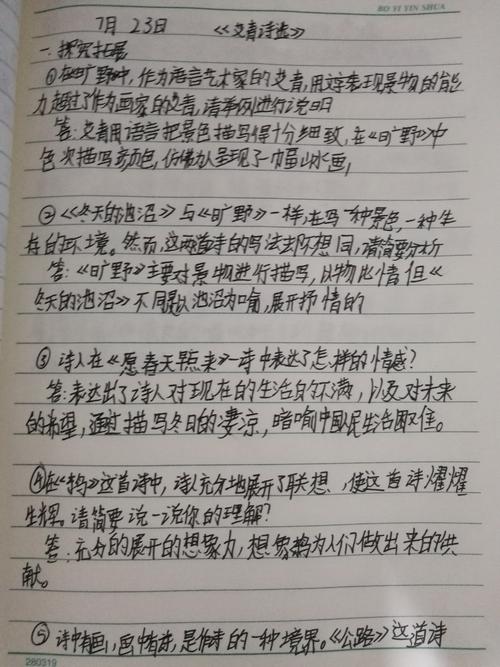 BO YI YIN SHUA
7月23日 《艾青诗选》
一.探究拓展
①在《旷野》中,作为语言艺术家的艾青,用文字表现景物的能
力超过了作为画家的艾青,请举例进行说明
答:艾青用语言把景色描写得十分细致,在《旷野》中
色次描写颜色,仿佛为人呈现了一幅山水画,
②《冬天的池沼》与《旷野》一样,在写一种景色,一种生
存的环境。然而,这两首诗的写法去所想同,请简要分析
答:《旷野》主要对景物进行描写,以物比情但《
冬天的池沼》不同是以池沼为喻,展开抒情的
③诗人在《愿春天早点来》一诗中表达了怎样的情感?
答:表达出了诗人对现在的生活的不满,以及对未来
的希望,通过描写冬日的凄凉,暗喻中国民生活困住。
④在《捣》这首诗中,诗人充分地展开了联想,使这首诗熠耀
生辉。请简要说一说你的理解?
答:充分的展开的想象力,想象鹅为人们做出来的供
献。
⑤诗中有画,画中有诗,是作诗的一种境界。《公路》这首诗
280319